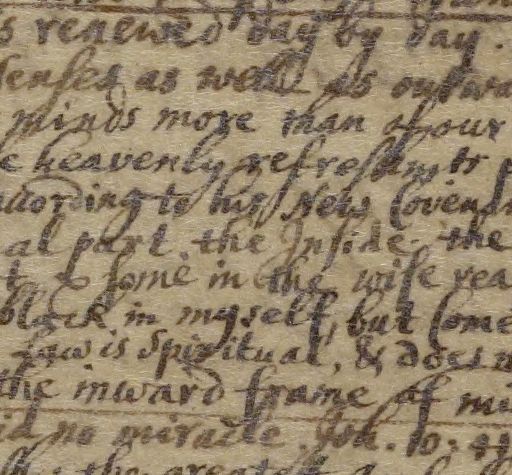 renewed day by day.
senses as well as outwa
minds more than of our
heavenly refreshmts
according to his New Covena
al part the Inside. the
some in the wise rea
black in myself, but Come
Law is Spiritual, & does n
the inward frame of mi
id no miracle. Joh. 10: 41
the greatest